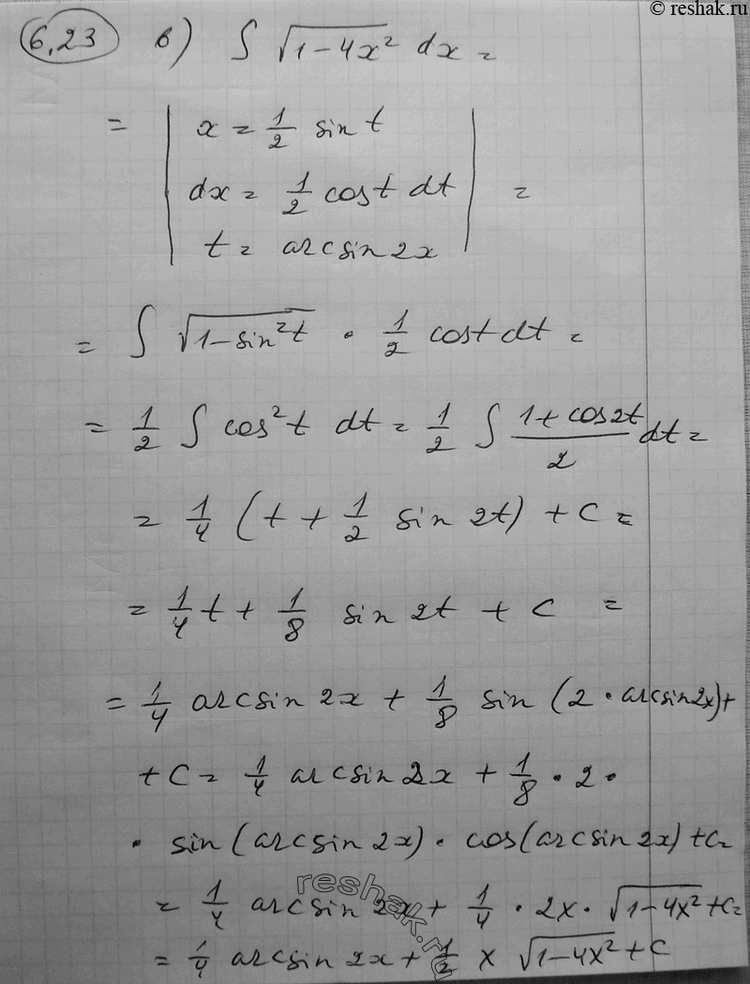 © reshak.ru
6,23 в) ∫ √(1-4x²) dx =
= | x = 1/2 sin t
dx = 1/2 cost dt | =
t = arcsin 2x
= ∫ √(1-sin²t) · 1/2 cost dt =
= 1/2 ∫ cos²t dt = 1/2 ∫ (1+cos2t)/2 dt =
= 1/4 (t + 1/2 sin 2t) + C =
= 1/4 t + 1/8 sin 2t + C =
= 1/4 arcsin 2x + 1/8 sin (2 · arcsin2x) +
+ C = 1/4 arcsin 2x + 1/8 · 2 ·
· sin(arcsin 2x) · cos(arcsin 2x) + C =
= 1/4 arcsin 2x + 1/4 · 2x · √(1-4x²) + C =
= 1/4 arcsin 2x + 1/2 x √(1-4x²) + C
reshak.ru